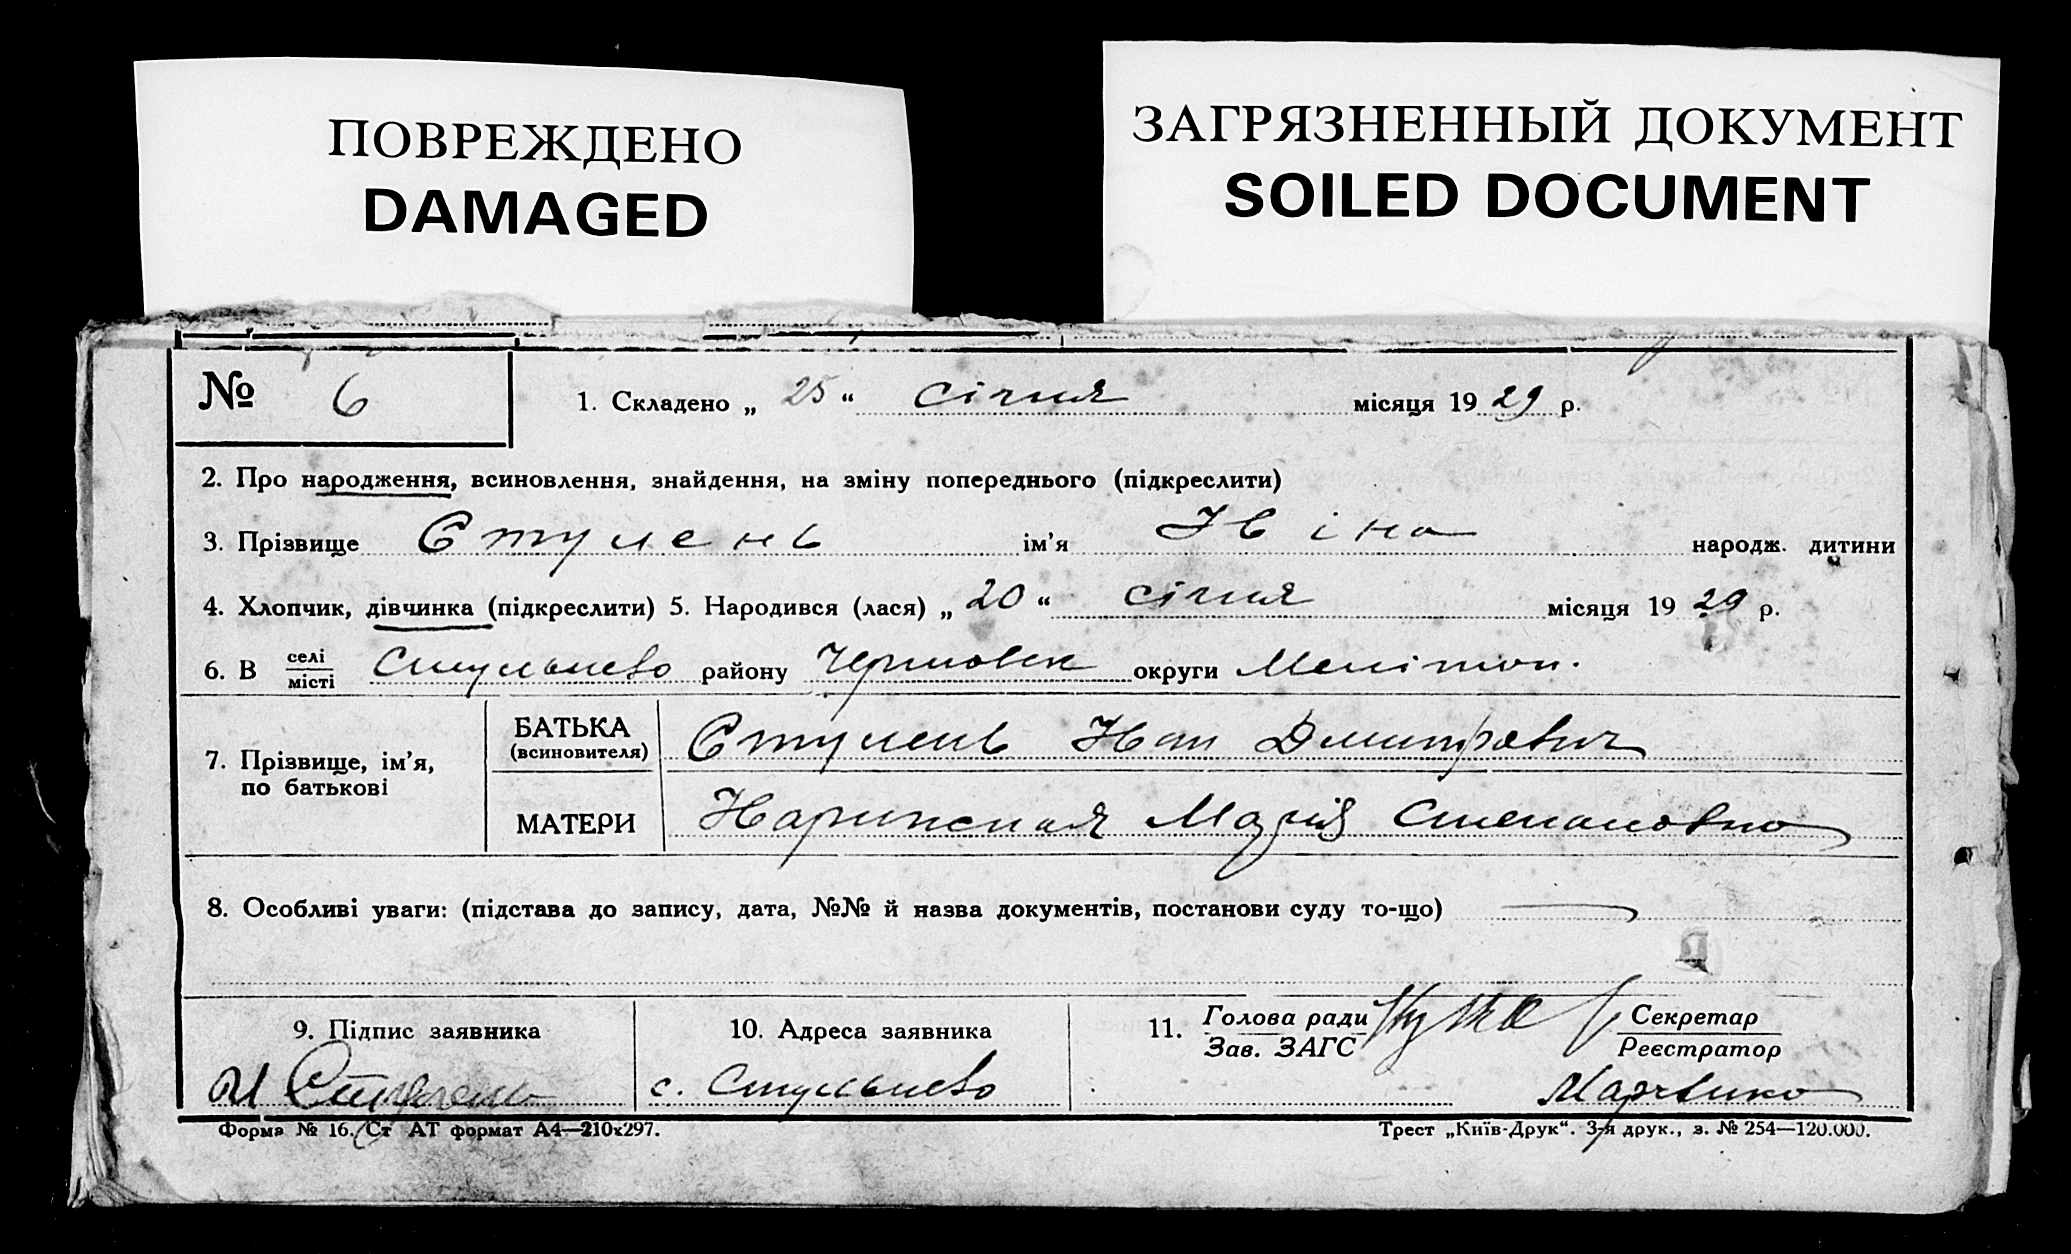 ПОВРЕЖДЕНО
DAMAGED
ЗАГРЯЗНЕННЫЙ ДОКУМЕНТ
SOILED DOCUMENT
№ 6 1. Складено „ 25 “ січня місяця 1929 р.
2. Про народження, всиновлення, знайдення, на зміну попереднього (підкреслити)
3. Прізвище Стулень ім'я народж. дитини
4. Хлопчик, дівчинка (підкреслити) 5. Народився (лася) „ 20 “ січня місяця 1929 р.
6. В селі місті Стульнево району округи Мелітоп.
7. Прізвище, ім'я, по батькові
БАТЬКА (всиновителя) Стулень Иван Дмитрович
МАТЕРИ Марія Степановна
8. Особливі уваги: (підстава до запису, дата, №№ й назва документів, постанови суду то-що)
9. Підпис заявника 10. Адреса заявника 11. Голова ради Зав. ЗАГС Секретар Реєстратор
И Стулень с. Стульнево
Форма № 16. Ст АТ формат А4—210х297. Трест „Київ-Друк“. 3-я друк., з. № 254—120.000.